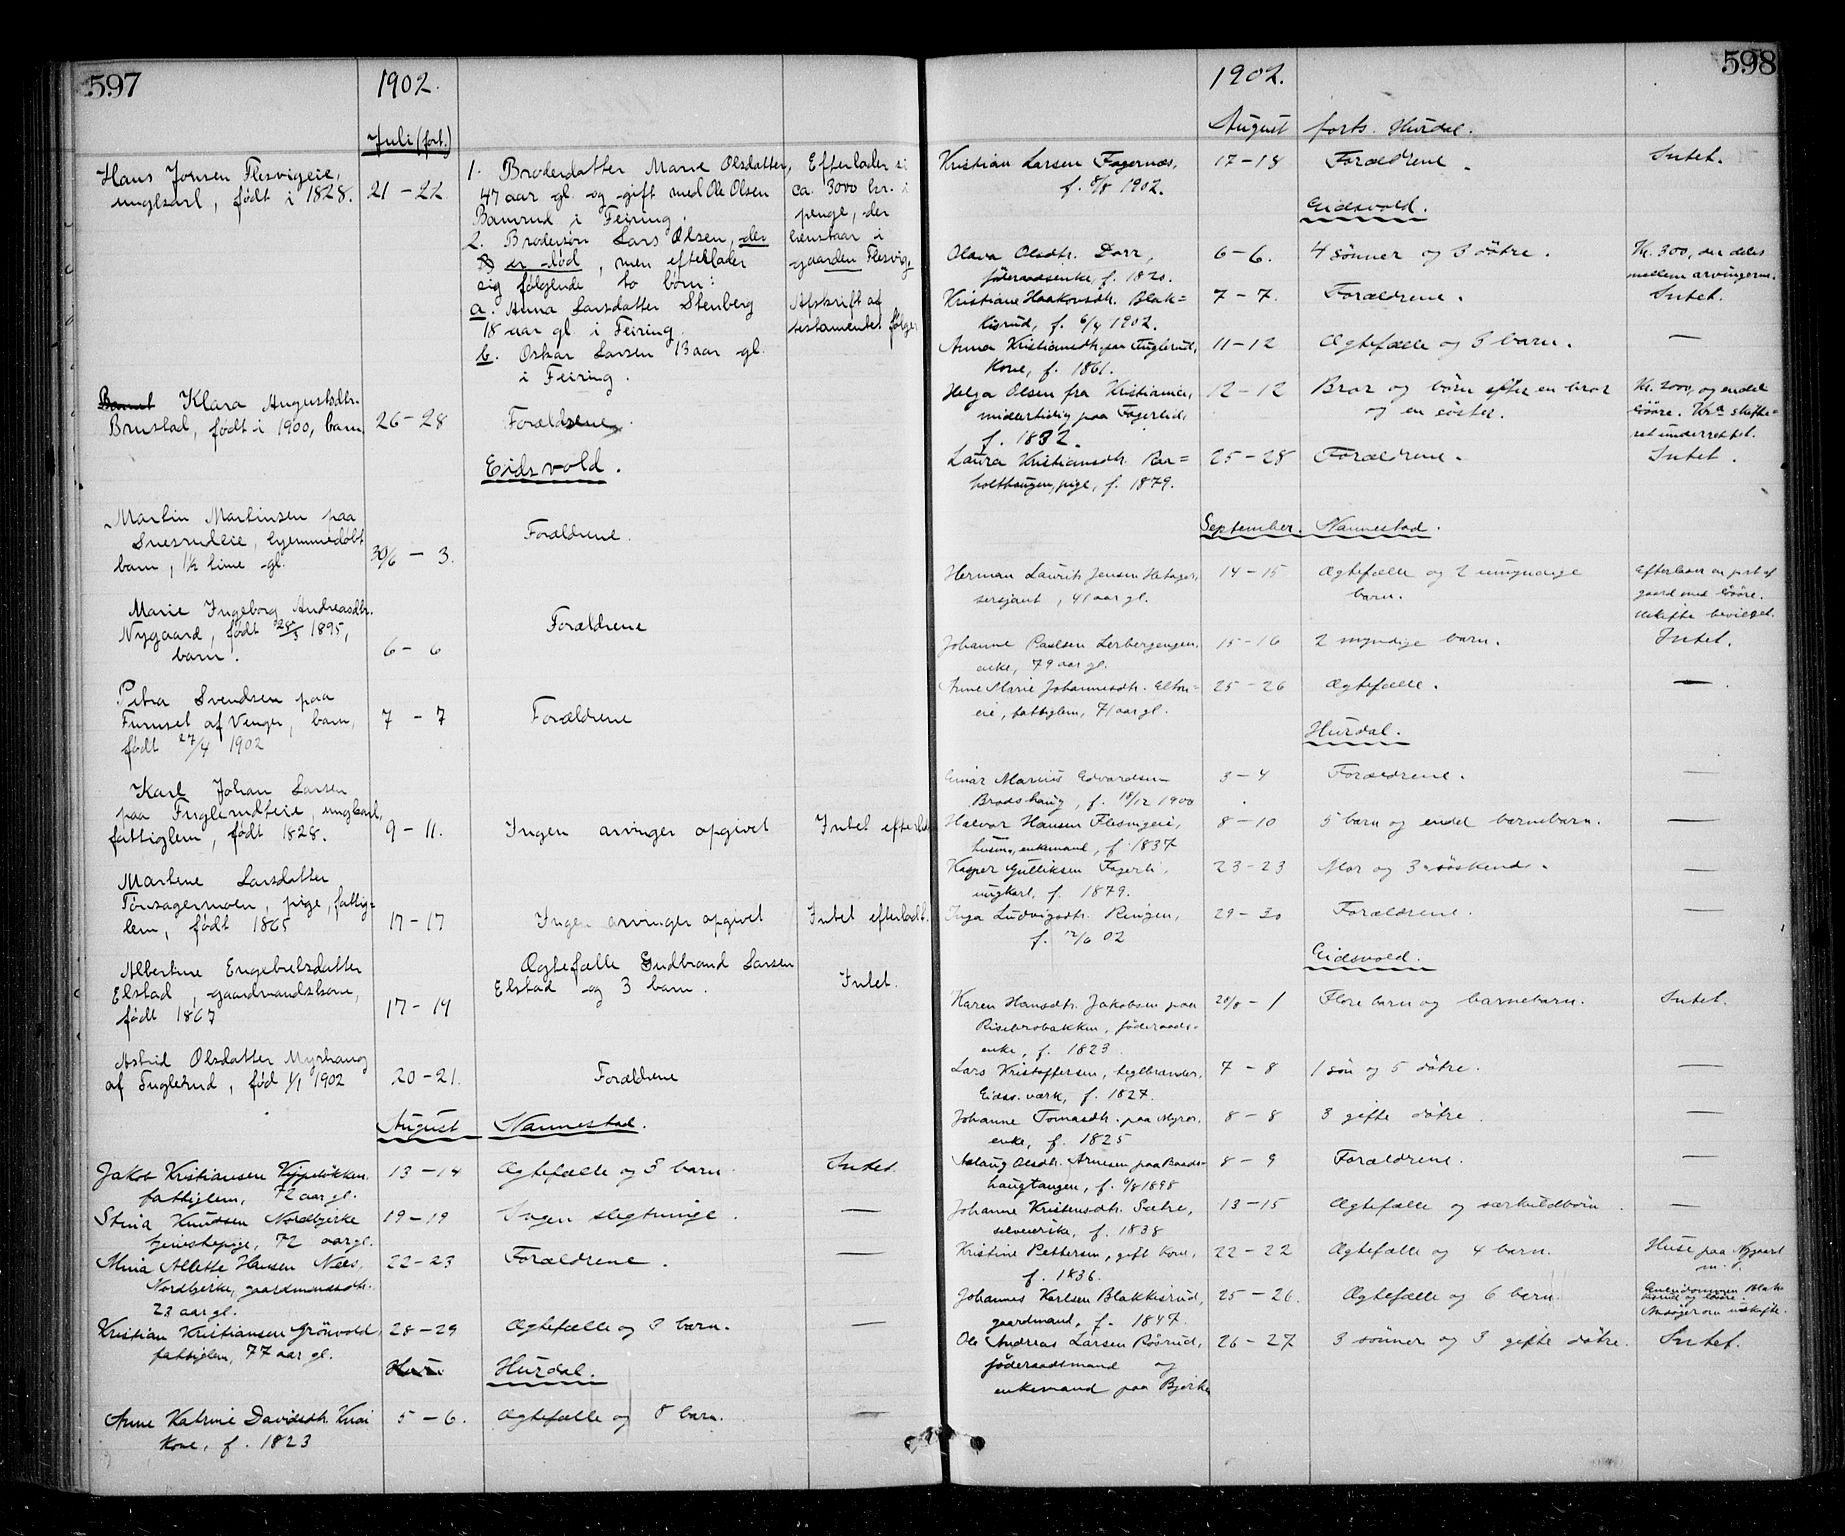 597
1902.
Juli (fort.)
Hans Jonsen Flesvigeie,
ungkarl, født i 1828.
21 - 22
1. Broderdatter Marie Olsdatter,
47 aar gl. og gift med Ole Olsen
i Feiring.
2. Brodersøn Lars Olsen, der
er død, men efterlader
sig følgende to børn:
a. Anna Larsdatter Stenberg
18 aar gl. i Feiring.
b. Oskar Larsen 13 aar gl.
i Feiring.
Efterlader
ca. 3000 kr. i
penge, der
i
gaarden Flesvig,
Afskrift af
testamentet følger
Barnet Klara Augustsdtr.
Brustad, født i 1900, barn
26 - 28
Forældrene.
Eidsvold.
Martin Martinsen paa
hjemmedøbt
barn, 1½ time gl.
30/6 - 3.
Forældrene.
Marie Ingeborg Andreasdtr.
Nygaard, født 28/3 1895,
barn.
6 - 6
Forældrene
Petra Svendsen paa
af Venger, barn,
født 27/4 1902
7 - 7
Forældrene
Karl Johan Larsen
paa Fuglerudeie, ungkarl,
fattiglem, født 1828.
9 - 11.
Ingen arvinger opgivet
Intet efterladt
Martine Larsdatter
pige, fattig=
lem, født 1865
17 - 17
Ingen arvinger opgivet
Intet efterladt.
Albertine Engebretsdatter
Elstad, gaardmandskone,
født 1867
17 - 19
Ægtefælle Gudbrand Larsen
Elstad og 3 barn.
Intet.
Astrid Olsdatter Myrhaug
af Fuglerud, fød 1/1 1902
20 - 21.
Forældrene
August Nannestad.
Jakob Kristiansen
fattiglem, 72 aar gl.
13 - 14
Ægtefælle og 3 barn.
Intet.
Stina Knudsen Nordbjerke
tjenestepige, 72 aar gl.
19 - 19
Ingen slegtninge.
—
Mina Alette Hansen Næs,
Nordbjerke, gaardmandsdtr.
23 aar gl.
22 - 23
Forældrene.
—
Kristian Kristiansen Grønvold,
fattiglem, 77 aar gl.
28 - 29
Ægtefælle og 3 barn.
—
Hurdal.
Anne Katrine Davidsdtr. Knai
Kone, f. 1823
5 - 6.
Ægtefælle og 8 barn.
—
598
1902.
August forts. Hurdal.
Kristian Larsen Fagernæs,
f. 8/8 1902.
17 - 18
Forældrene.
Intet.
Eidsvold.
Olava Olsdtr. Dorr,
føderaadsenke, f. 1820.
6 - 6.
4 sønner og 3 døtre.
Kr. 300, der deles
mellem arvingerne.
Kristiane Haakonsdtr. Blak=
kisrud, f. 6/4 1902.
7 - 7.
Forældrene.
Intet.
Anna Kristiansdtr. paa Fuglerud,
Kone, f. 1861.
11 - 12
Ægtefælle og 3 barn.
—
Helga Olsen fra Kristiania,
midlertidig paa Fagerlid,
f. 1832.
12 - 12
Bror og børn efter en bror
og en søster.
Kr. 2000, og endel
løsøre. Kra skifte=
ret underrettet.
Laura Kristiansdtr. Raa=
holthaugen, pige, f. 1879.
25 - 28
Forældrene.
Intet.
September. Nannestad.
Herman Laurits Jensen
sersjant, 41 aar gl.
14 - 15
Ægtefælle og 2 umyndige
barn.
Efterlader en part af
gaard med løsøre.
Uskifte bevilget.
Johanne Paulsen Lerbergengen,
enke, 79 aar gl.
15 - 16
2 myndige barn.
Intet.
Anne Marie Johannesdtr. Elton=
eie, fattiglem, 71 aar gl.
25 - 26
Ægtefælle.
—
Hurdal.
Einar Marius Edvardsen
Brodshaug, f. 18/12 1900
3 - 4
Forældrene.
—
Halvor Hansen Flesvigeie,
husm., enkemand, f. 1837
8 - 10
5 barn og endel barnebarn.
—
Kasper Gulliksen Fagerli,
ungkarl, f. 1879.
23 - 23
Mor og 3 søskend.
—
Inga Ludvigsdtr. Ringen,
f. 12/6 02
29 - 30
Forældrene.
—
Eidsvold.
Karen Hansdtr. Jakobsen paa
Risebrobakken, føderaads-
enke, f. 1823.
28/8 - 1
Flere barn og barnebarn.
Intet.
Lars Kristoffersen, teglbrænder,
Eidsv. værk, f. 1827.
7 - 8
1 søn og 5 døtre.
—
Johanne Tomasdtr. paa Myrer,
enke, f. 1825
8 - 8
3 gifte døtre.
—
Aslaug Olsdtr. Arnesen paa Baads-
haugtangen, f. 4/8 1898
8 - 9
Forældrene.
—
Johanne Kristensdtr. Sætre,
selveierske, f. 1838
13 - 15
Ægtefælle og særkuldbørn.
—
Kristine Pettersen, gift kone,
f. 1836.
22 - 22
Ægtefælle og 4 barn.
Huse paa Nygaard
m. J.
Johannes Karlsen Blakkisrud,
gaardmand, f. 1847.
25 - 26.
Ægtefælle og 6 barn.
og løsøre.
Ansøger om uskifte.
Ole Andreas Larsen Røsrud,
føderaadsmand og
enkemand paa Bjerke
26 - 27
3 sønner og 3 gifte døtre.
Intet.